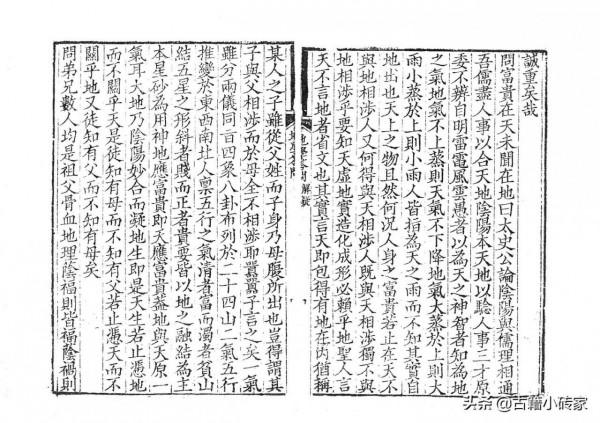 誠重矣哉
問富貴在天未聞在地曰太史公論陰陽與儒理相通
吾儒盡人事以合天地陰陽本天地以驗人事三才原
委不辨自明雷電風雲愚者以為天之神智者知為地
之氣地氣不上蒸則天氣不下降地氣大蒸於上則大
雨小蒸於上則小雨人皆指為天之雨而不知其實自
地出也天上之物且然何況人身之富貴若止在天不
與地相涉人又何得與天相涉人既與天相涉獨不與
地相涉乎要知天虛地實造化成形必賴乎地聖人言
天不言地者省文也其實言天即包得有地在内猶稱
解疑
某人之子雖從父姓而子身乃母腹所出也豈得謂其
子與父相涉而於母全不相涉耶囂囂子言之矣一氣
雖分兩儀同四象八卦布列於二十四山二氣五行
推變於東西南北人禀五行之氣清者富而濁者貧山
結五星之形斜者賤而正者貴要皆以地之融結為主
本星砂為用神地應富貴即天應富貴蓋地與天原一
氣耳大地乃陰陽妙合而凝地生即是天生若止憑地
而不關乎天是徒知有母而不知有父若止憑天而不
關乎地又徒知有父而不知有母矣
問弟兄數人均是祖父骨血地理蔭福則皆福蔭禍則
头条 @古籍小砖家